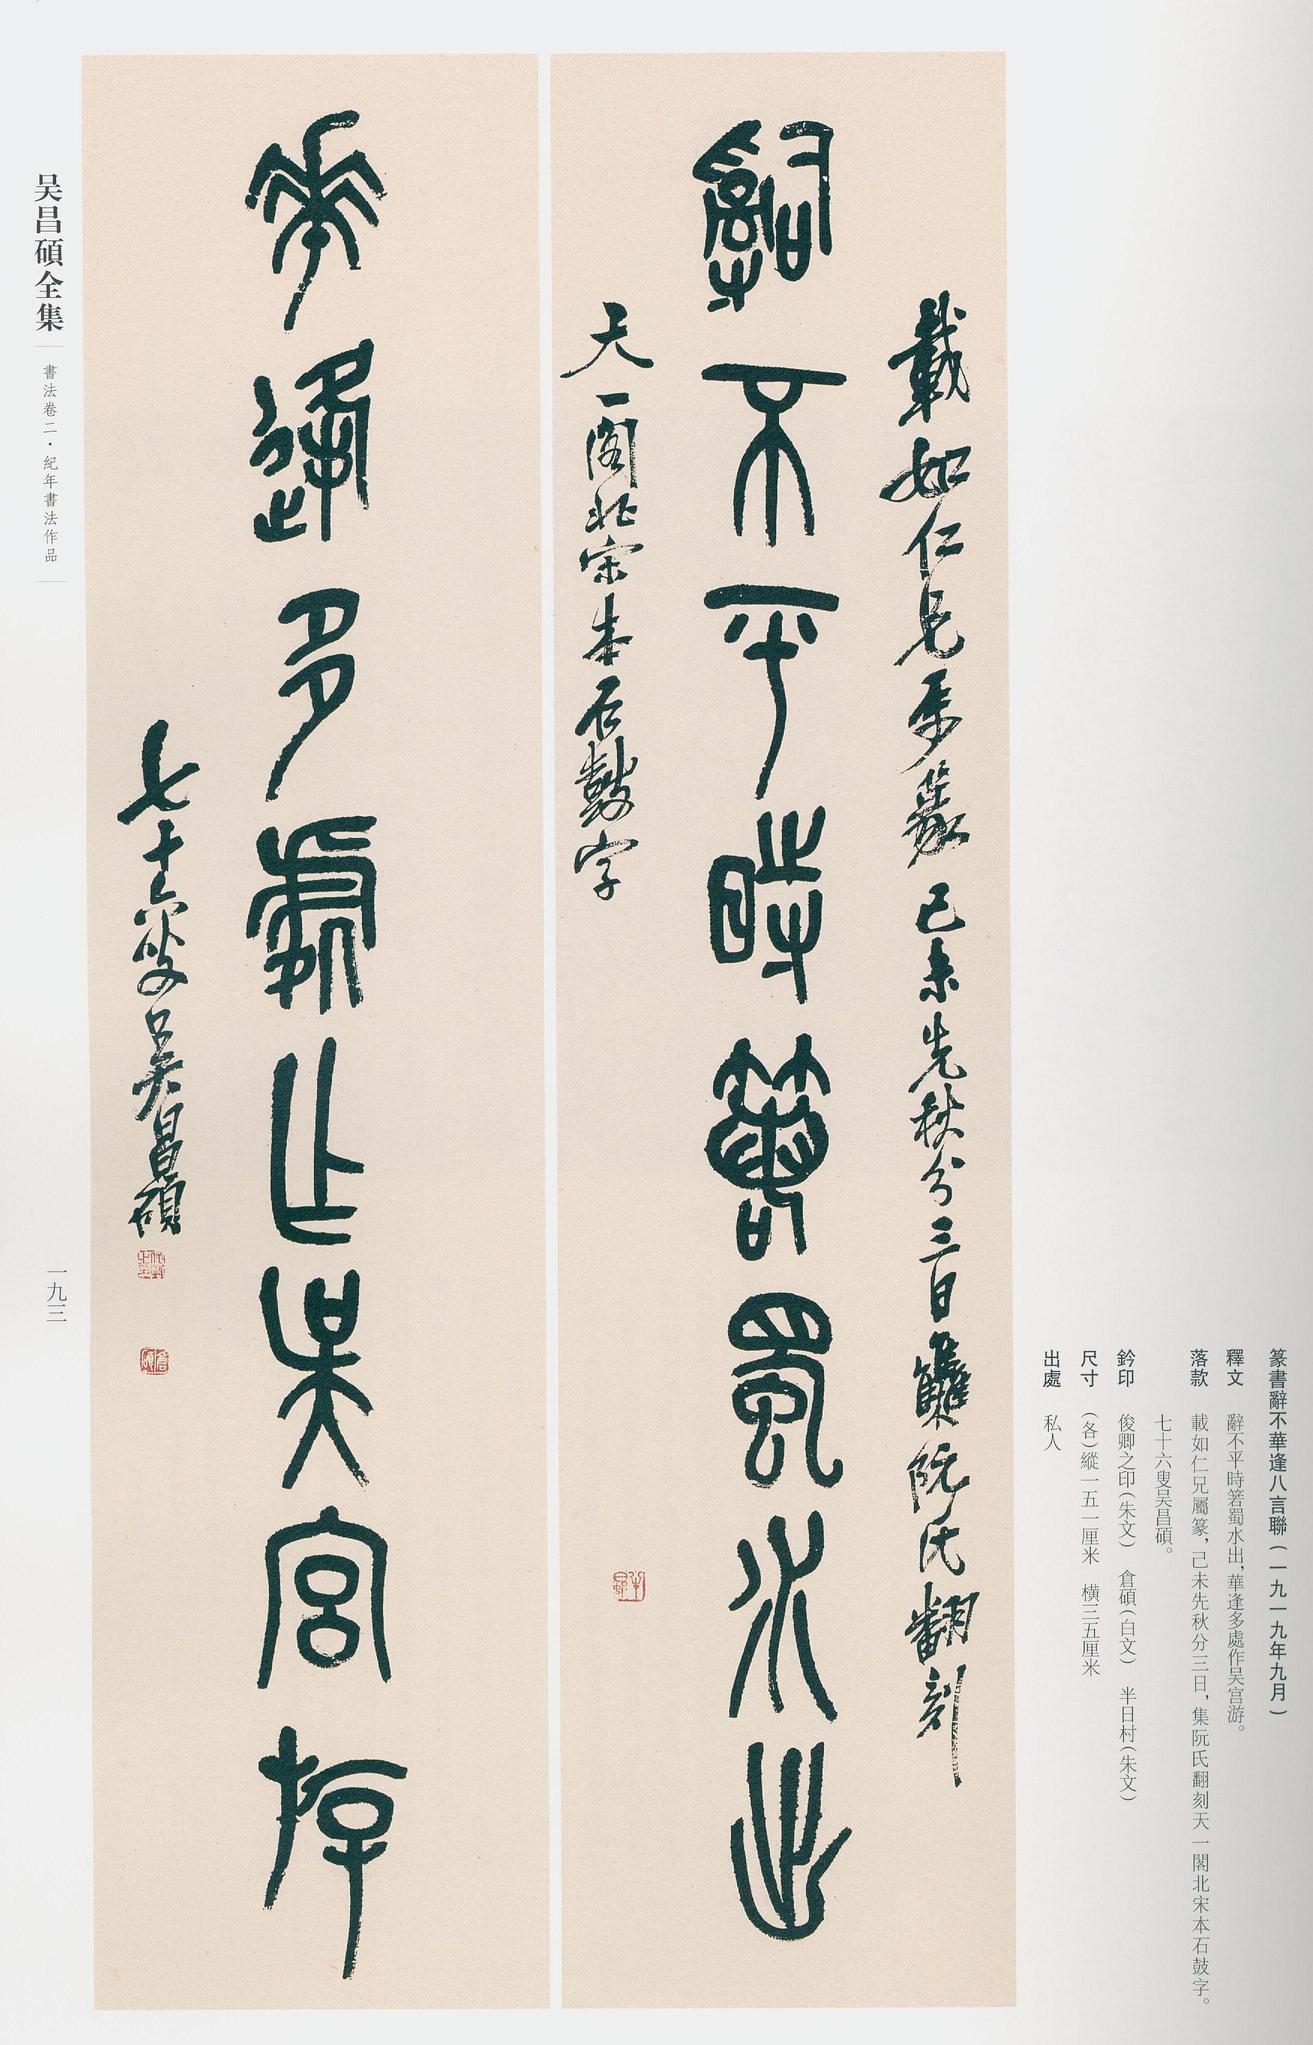 篆書辭不華逢八言聯（一九一九年九月）
釋文　辭不平時箬蜀水出，華逢多處作吴宫游。
落款　載如仁兄屬篆，己未先秋分三日，集阮氏翻刻天一閣北宋本石鼓字。
七十六叟吴昌碩。
鈐印　俊卿之印（朱文）　倉碩（白文）　半日村（朱文）
尺寸　（各）縱一五一厘米　橫三五厘米
出處　私人
載如仁兄屬篆己未先秋分三日集阮氏翻刻
辭不平時箬蜀水出
天一閣北宋本石鼓字
半日村
華逢多處作吴宫游
七十六叟吴昌碩
俊卿之印
倉碩
吴昌碩全集
書法卷二·紀年書法作品
一九三